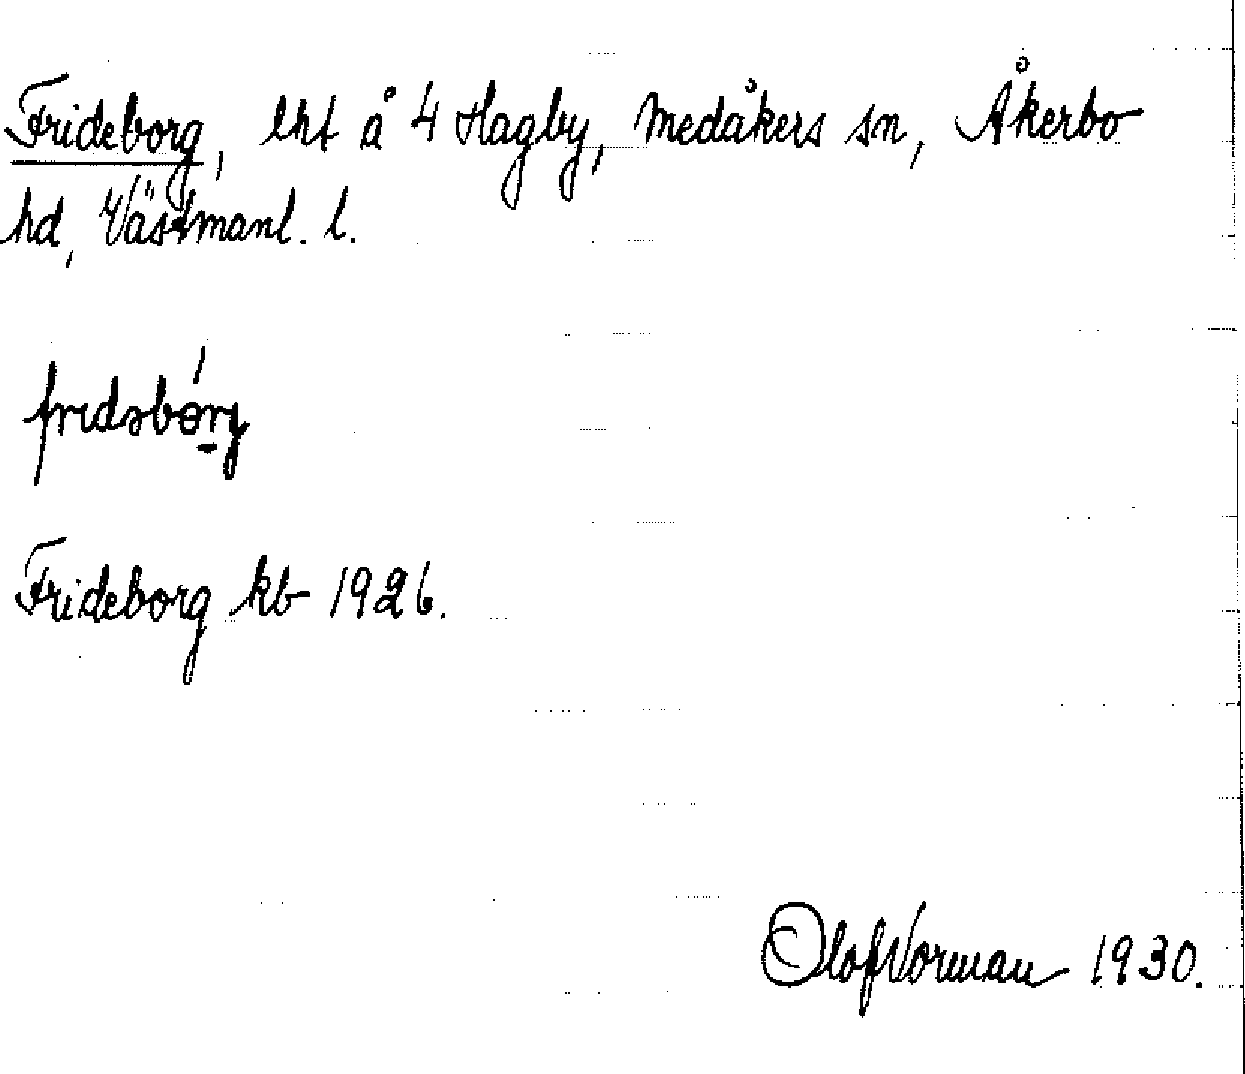 Frideborg, lht å 4 Hagby, Medåkers sn, Åkerbo
hd, Västmanl. l.
fridəbórg
Frideborg kb 1926.
Olof Norman 1930.